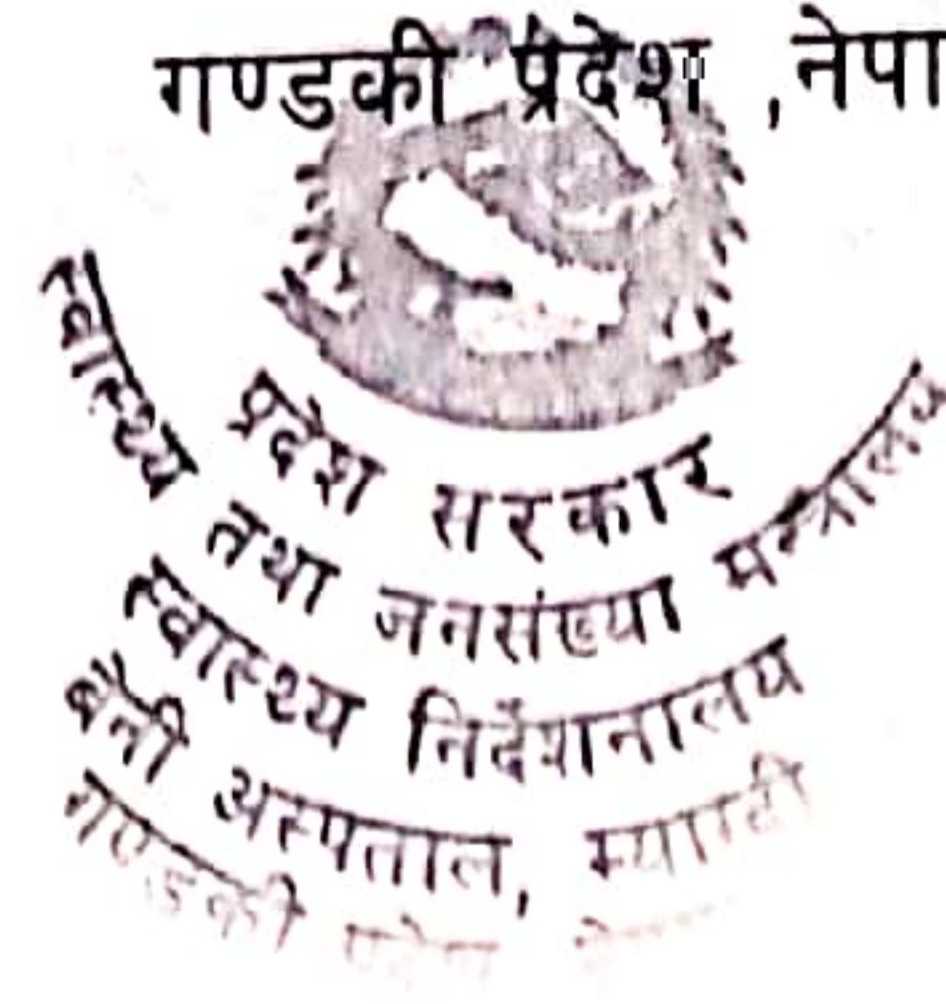 गण्डकी प्रदेश ,नेपा
प्रदेश सरकार
स्वास्थ्य तथा जनसंख्या मन्त्रालय
स्वास्थ्य निर्देशनालय
बेनी अस्पताल, म्याग्दी
गण्डकी प्रदेश